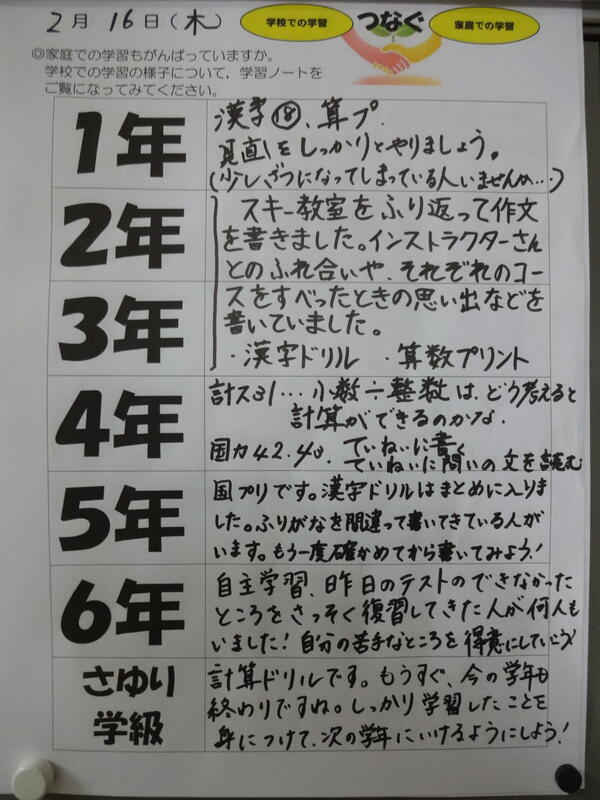 2月 16日(木)
学校での学習 つなぐ 家庭での学習
◎家庭での学習もがんばっていますか。
学校での学習の様子について、学習ノートを
ご覧になってみてください。
1年
漢字⑱、算プ.
見直しをしっかりとやりましょう。
(少しざつになってしまっている人いませんか…)
2年
スキー教室をふり返って作文
を書きました。インストラクターさん
とのふれ合いや、それぞれのコー
3年
スをすべったときの思い出などを
書いていました。
・漢字ドリル ・算数プリント
4年
計ス31…小数÷整数は、どう考えると
計算ができるのかな.
国カ42.40. ていねいに書く
ていねいに問いの文を読む
5年
国プリです。漢字ドリルはまとめに入りま
した。ふりがなを間違って書いてきている人が
います。もう一度確かめてから書いてみよう!
6年
自主学習、昨日のテストのできなかった
ところをさっそく復習してきた人が何人も
いました!自分の苦手なところを得意にしていこう!
さゆり
学級
計算ドリルです。もうすぐ、今の学年も
終わりですね。しっかり学習したことを
身につけて、次の学年にいけるようにしよう!